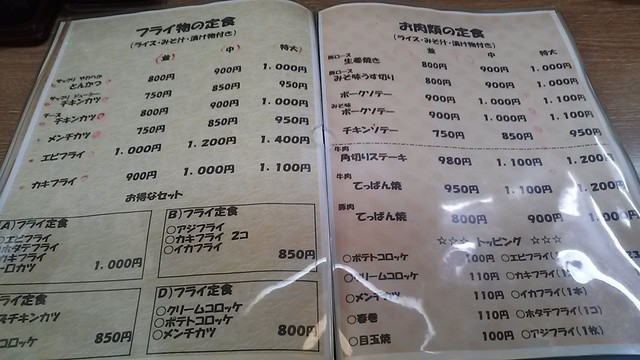 フライ物の定食
(ライス・みそ汁・漬け物付き)
並 中 特大
サックリ やわらか
とんかつ 800円 900円 1.000円
サックリ ジューシー
チキンカツ 750円 850円 950円
チーズ
チキンカツ 800円 900円 1.000円
メンチカツ 750円 850円 950円
エビフライ 1.000円 1.200円 1.400円
カキフライ 900円 1.000円 1.100円
お得なセット
A)フライ定食
○エビフライ
○ホタテフライ
カキフライ
一口カツ
1.000円
B)フライ定食
○アジフライ
○カキフライ 2コ
○イカフライ
850円
フライ定食
チキンカツ
コロッケ
850円
D)フライ定食
○クリームコロッケ
○ポテトコロッケ
○メンチカツ
800円
お肉類の定食
(ライス・みそ汁・漬け物付き)
並 中 特大
豚ロース
生姜焼き 800円 900円 1.000円
豚ロース
みそ味うす切り 800円 900円 1.000円
ポークソテー 900円 1.000円 1.100円
みそ味
ポークソテー 900円 1.000円 1.100円
チキンソテー 750円 850円 950円
牛肉
角切りステーキ 980円 1.100円 1.200円
牛肉
てっぱん焼 950円 1.100円 1.200円
豚肉
てっぱん焼 800円 900円 1.000円
☆☆☆ トッピング ☆☆☆
○ポテトコロッケ 100円 ○エビフライ
○クリームコロッケ 110円 ○カキフライ(1コ)
○メンチカツ 110円 ○イカフライ(1本)
○春巻 110円 ○ホタテフライ(1コ)
○目玉焼 100円 ○アジフライ(1枚)